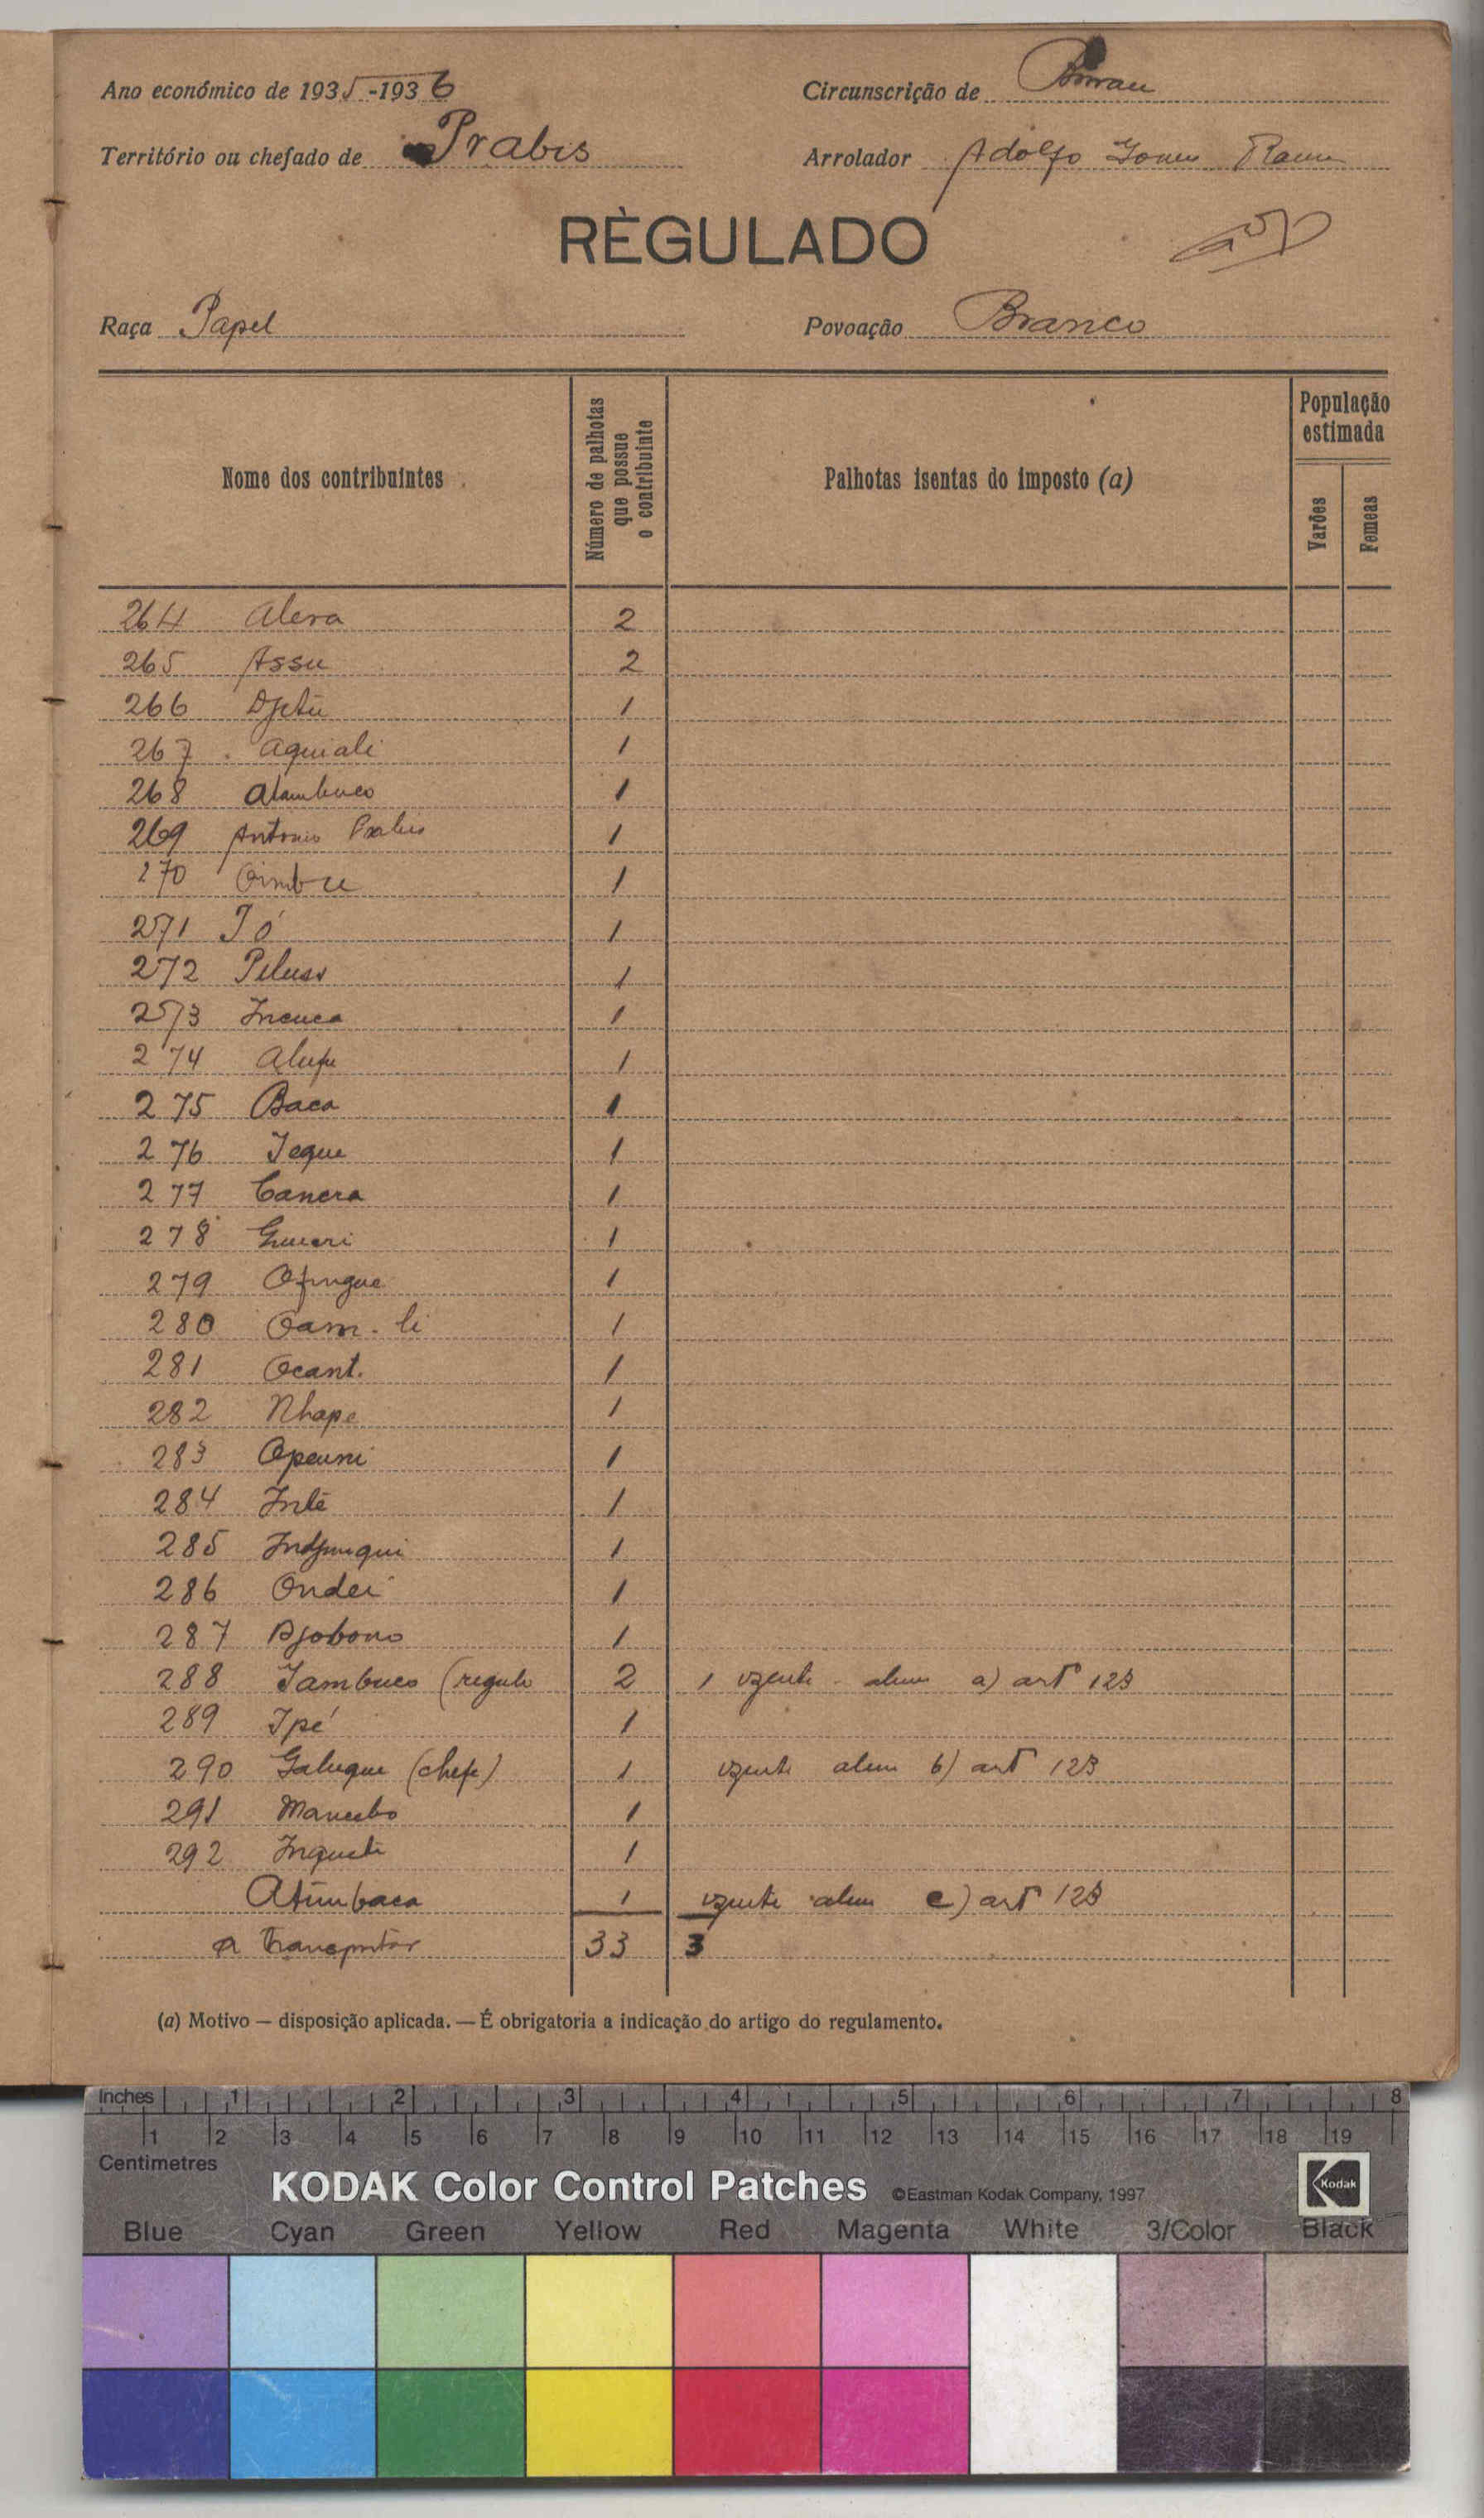 Ano económico de 1935-1936 Circunscrição de
Território ou chefado de Prabis Arrolador Adolfo Gomes Ramos
RÈGULADO
Raça Papel Povoação Branco
Nome dos contribuintes
Número de palhotas que possue o contribuinte
Palhotas isentas do imposto (a)
População estimada
Varões
Femeas
264 Alera 2
265 Assu 2
266 Djetú 1
267 Aquiali 1
268 Atambuco 1
269 Antonio Prabis 1
270 Oimbre 1
271 Jó 1
272 Peluss 1
273 Incuca 1
274 Alufu 1
275 Baca 1
276 Jeque 1
277 Canera 1
278 1
279 Ofingue 1
280 Oam-li 1
281 Ocant. 1
282 Nhape 1
283 Opeuni 1
284 Inté 1
285 Indjunqui 1
286 Ondei 1
287 Djobono 1
288 Jambuco (regulo 2 1 izente alum a) artº 123
289 Ipé 1
290 Galuque (chefe) 1 izente alum b) artº 123
291 Mancebo 1
292 Inquete 1
Atimbaca 1 izente alum c) artº 123
A transportar 33 3
(a) Motivo — disposição aplicada. — É obrigatoria a indicação do artigo do regulamento.
Inches 1 2 3 4 5 6 7 8
1 2 3 4 5 6 7 8 9 10 11 12 13 14 15 16 17 18 19
Centimetres
KODAK Color Control Patches ©Eastman Kodak Company, 1997 Kodak
Blue Cyan Green Yellow Red Magenta White 3/Color Black